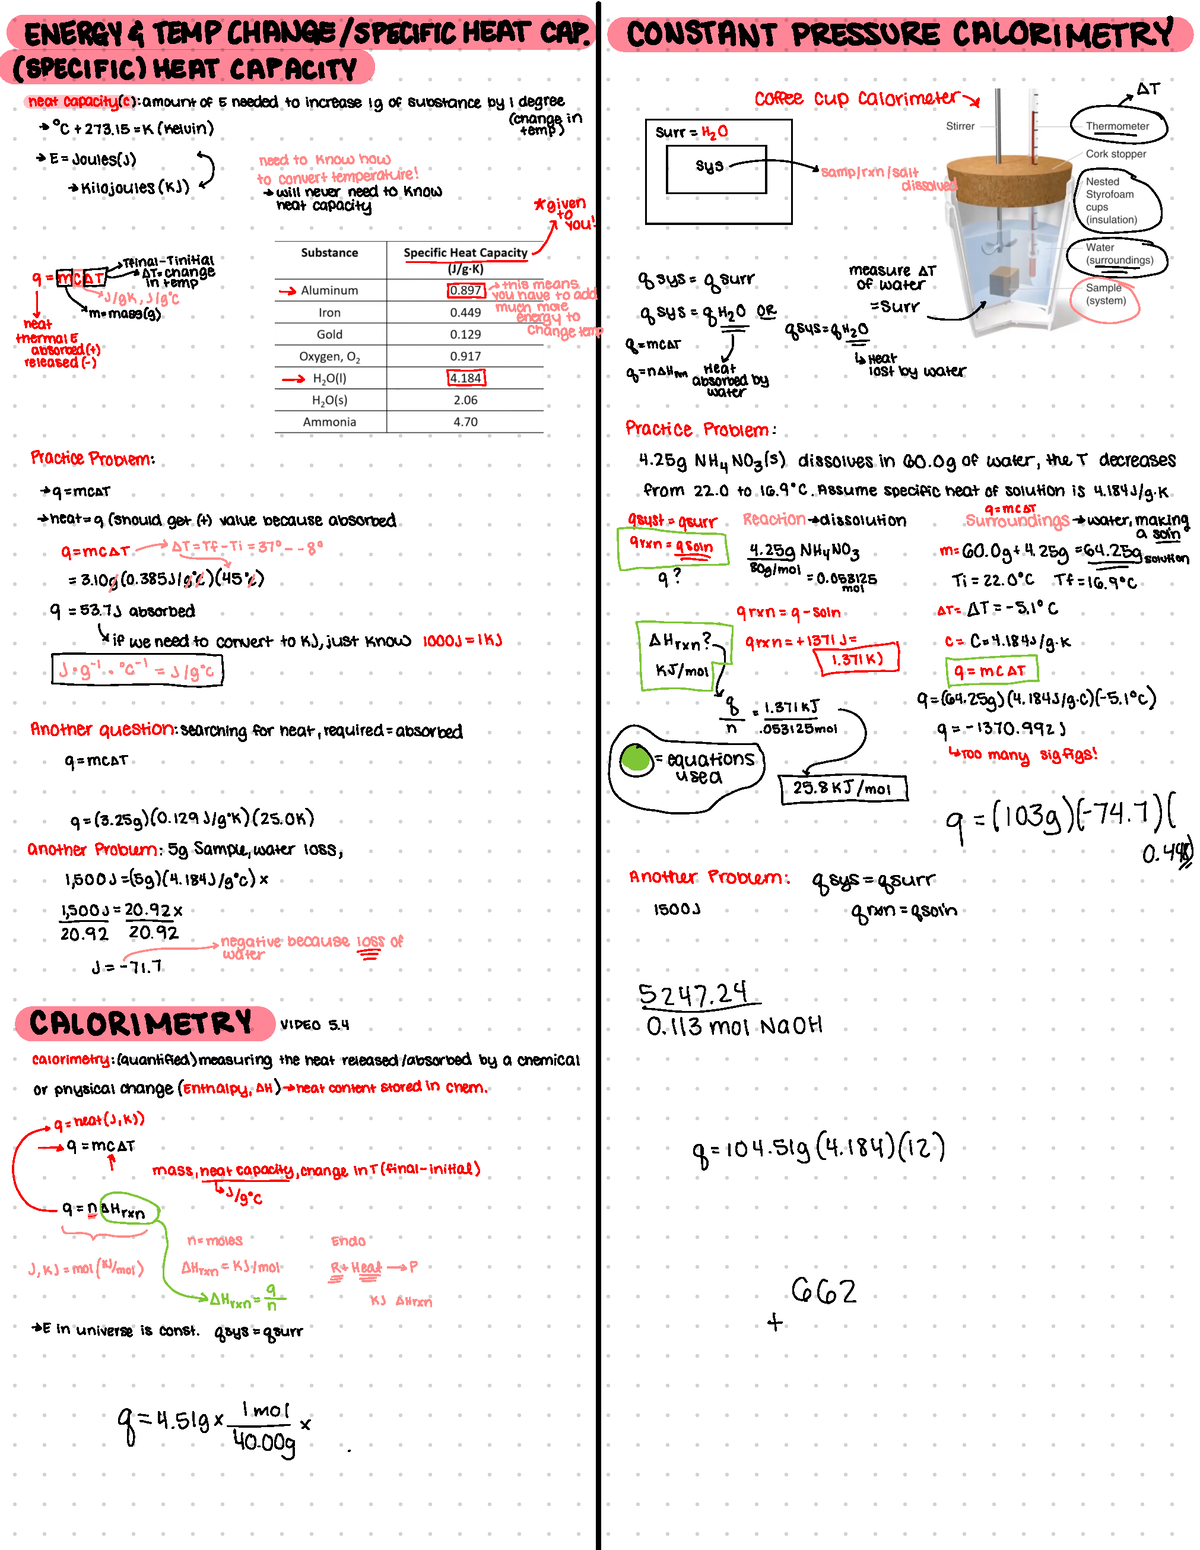 ENERGY & TEMP CHANGE/SPECIFIC HEAT CAP.
(SPECIFIC) HEAT CAPACITY
heat capacity(c):amount of E needed to increase 1g of substance by 1 degree
(change in temp)
→ °C + 273.15 = K (Kelvin)
→ E = Joules(J)
→ Kilojoules (KJ)
need to know how
to convert temperature!
→ will never need to know
heat capacity
*given
to
you!
q = mCΔT
Tfinal-Tinitial
ΔT=change
in temp
J/gK, J/g°C
m=mass(g)
heat
thermal E
absorbed(+)
released(-)
Substance Specific Heat Capacity
(J/g·K)
→ Aluminum 0.897
Iron 0.449
Gold 0.129
Oxygen, O₂ 0.917
→ H₂O(l) 4.184
H₂O(s) 2.06
Ammonia 4.70
→this means
you have to add
much more
energy to
change temp
Practice Problem:
→q=mCΔT
→heat=q (should get (+) value because absorbed
q=mCΔT → ΔT=Tf-Ti = 37° - -8°
= 3.10g(0.385J/g°C)(45°C)
q = 53.7J absorbed
if we need to convert to KJ, just know 1000J = 1KJ
J·g⁻¹·°C⁻¹ = J/g°C
Another question: searching for heat, required = absorbed
q=mCΔT
q=(3.25g)(0.129J/g°K)(25.0K)
another Problem: 5g Sample, water loss,
1,500J=(5g)(4.184J/g°C)x
1,500J = 20.92x
20.92 20.92
→negative because loss of
water
J = -71.7
CALORIMETRY VIDEO 5.4
calorimetry:(quantified)measuring the heat released/absorbed by a chemical
or physical change (Enthalpy, ΔH)→heat content stored in chem.
q=heat(J,KJ))
→ q = mCΔT
mass, heat capacity, change in T (final-initial)
↳J/g°C
q = nΔHrxn
J, KJ = mol (KJ/mol)
n=moles
ΔHrxn = KJ/mol
→ΔHrxn = q/n
Endo
R+Heat → P
KJ ΔHrxn
→E in universe is const. qsys = qsurr
q = 4.51g x 1 mol / 40.00g x
CONSTANT PRESSURE CALORIMETRY
Coffee Cup Calorimeter→
Surr = H₂O
Sys
→samp/rxn/salt
dissolved
ΔT
Stirrer
Thermometer
Cork stopper
Nested
Styrofoam
cups
(insulation)
Water
(surroundings)
Sample
(system)
q sys = q surr
q sys = q H₂O OR
qsys=qH₂O
q=mCΔT
q=nΔHrxn
Heat
absorbed by
water
↳ Heat
lost by water
measure ΔT
of water
=surr
Practice Problem:
4.25g NH₄NO₃(s) dissolves in 60.0g of water, the T decreases
from 22.0 to 16.9°C. Assume specific heat of solution is 4.184J/g·K
q=mCΔT
qsyst = qsurr
qrxn = qsoln
q?
Reaction→dissolution
4.25g NH₄NO₃
80g/mol = 0.053125
mol
Surroundings→water, making
a soln
m=60.0g+4.25g =64.25g solution
Ti = 22.0°C Tf=16.9°C
ΔT= ΔT = -5.1°C
c= C=4.184J/g·K
q = mCΔT
q=(64.25g)(4.184J/g·C)(-5.1°C)
q = -1370.992J
↳too many sigfigs!
qrxn = q-soln
qrxn=+1371J=
1.371KJ
ΔHrxn?
KJ/mol
q/n = 1.371KJ / .053125mol
25.8KJ/mol
= equations
used
q =(103g)(-74.7)(
Another Problem: qsys=qsurr
1500J
qrxn = qsoln
5247.24
0.113 mol NaOH
q=104.51g (4.184)(12)
662
+